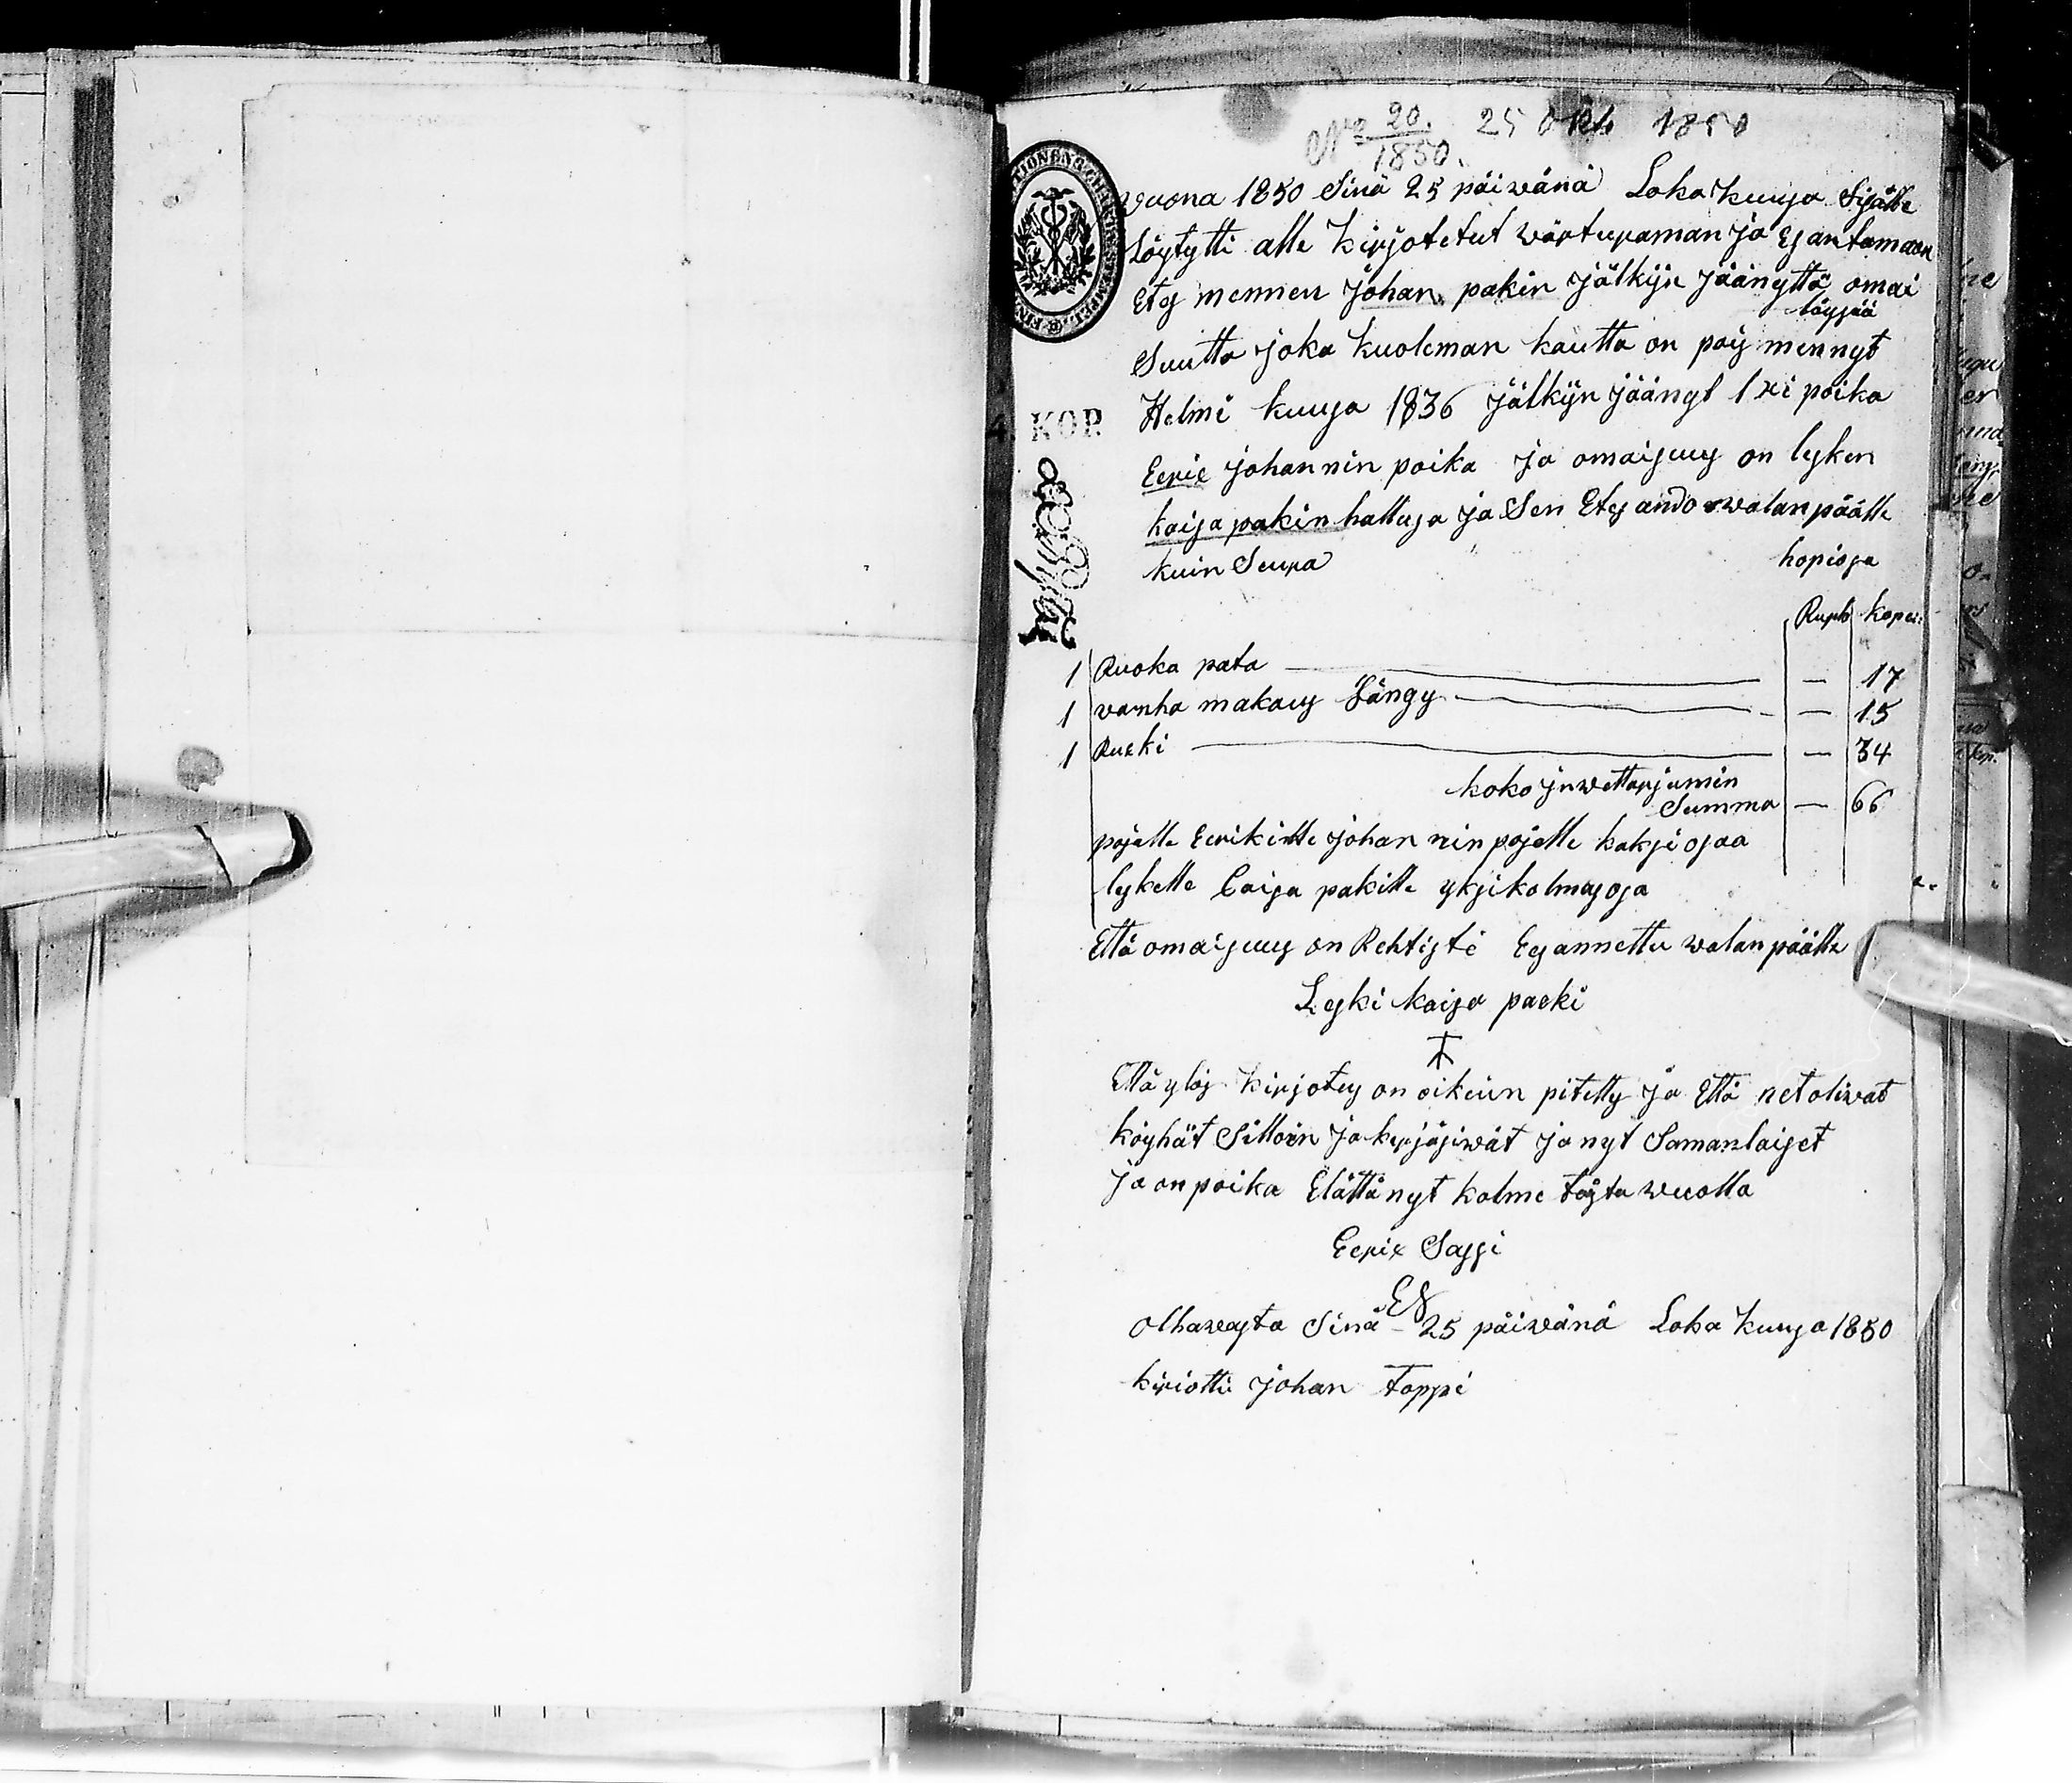 No 20. 1850. 25 Okt 1850
vuona 1850 Sinä 25 päiwänä Loka kuuṡa Sijälle
Löytytti alle kirjotetut wärteeraman ja Eṡantamaan
Eteṡ mennen johan pakin jälkijn jäänyttä omai
löyṡää
Suutta joka kuoleman kautta on poiṡ mennyt
Helmi kuuṡa 1836 jälkijn jäänyt 1xi poika
Eerix johannin poika ja omaiṡuuṡ on leṡken
kaiṡa pakin halluṡa ja Sen Eteṡ ando walan päälle
kuin Seura hopioṡa
Rupl kopei:
1 Ruoka pata — 17
1 vanha makauṡ Sängy — 15
1 Rueki — 34
koko jnwettarjumin
Summa — 66
pojalle Eerikille johan nin pojalle kakṡi oṡaa
leṡkelle Caiṡa pakille ykṡikolmaṡ oṡa
Että omaiṡuuṡ on Rehtiṡti Eṡannettu walan päälle
Leṡki kaiṡa packi
Että ylöṡ kirjoteṡ on oikein pitetty ja Että net oliwat
köyhät Silloin ja kerjäṡiwät ja nyt Samanlaiṡet
ja on poika Elättänyt kolme toiṡta wuotta
Eerix Saṡṡi
ES
olhawaṡta Sinä 25 päiwänä Loka kuuṡa 1850
kiriotti johan Toppi
KOP